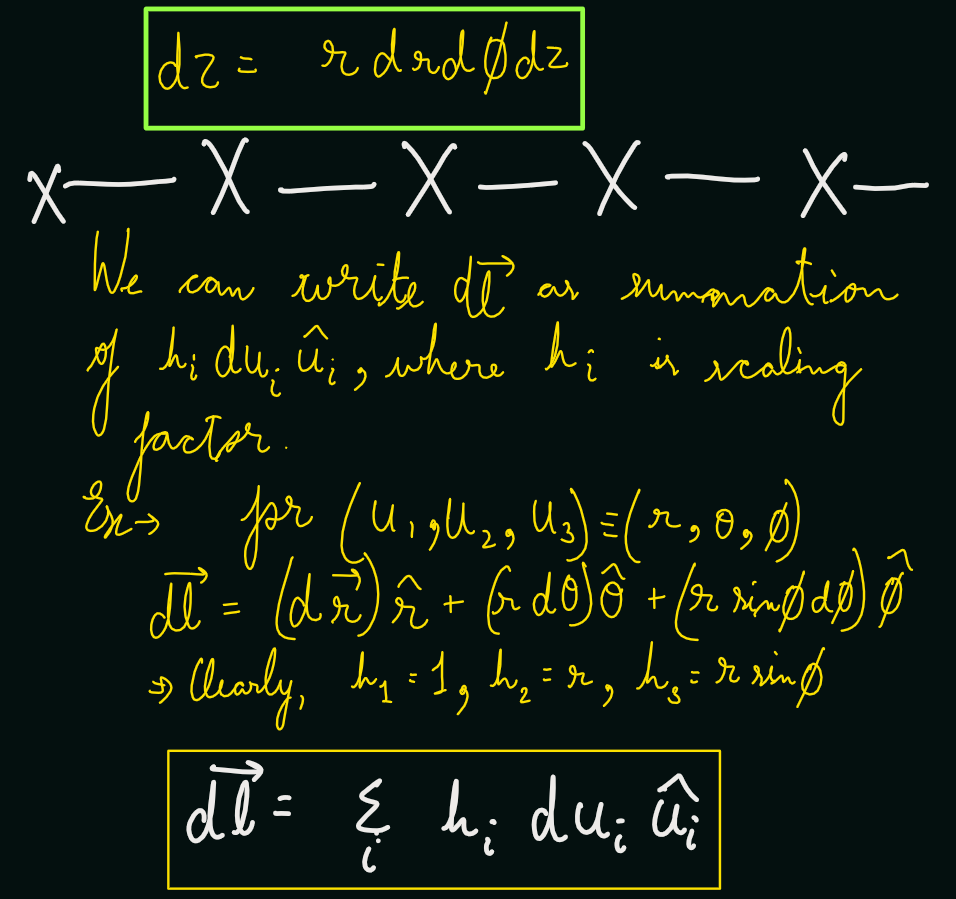 dτ = r dr dϕ dz
X — X — X — X — X —
We can write d\vec{l} as summation
of hᵢ duᵢ ûᵢ, where hᵢ is scaling
factor.
Ex → for (u₁, u₂, u₃) ≡ (r, θ, ϕ)
d\vec{l} = (d\vec{r}) r̂ + (r dθ) θ̂ + (r sinϕ dϕ) ϕ̂
⇒ Clearly, h₁ = 1, h₂ = r, h₃ = r sinϕ
d\vec{l} = Σᵢ hᵢ duᵢ ûᵢ